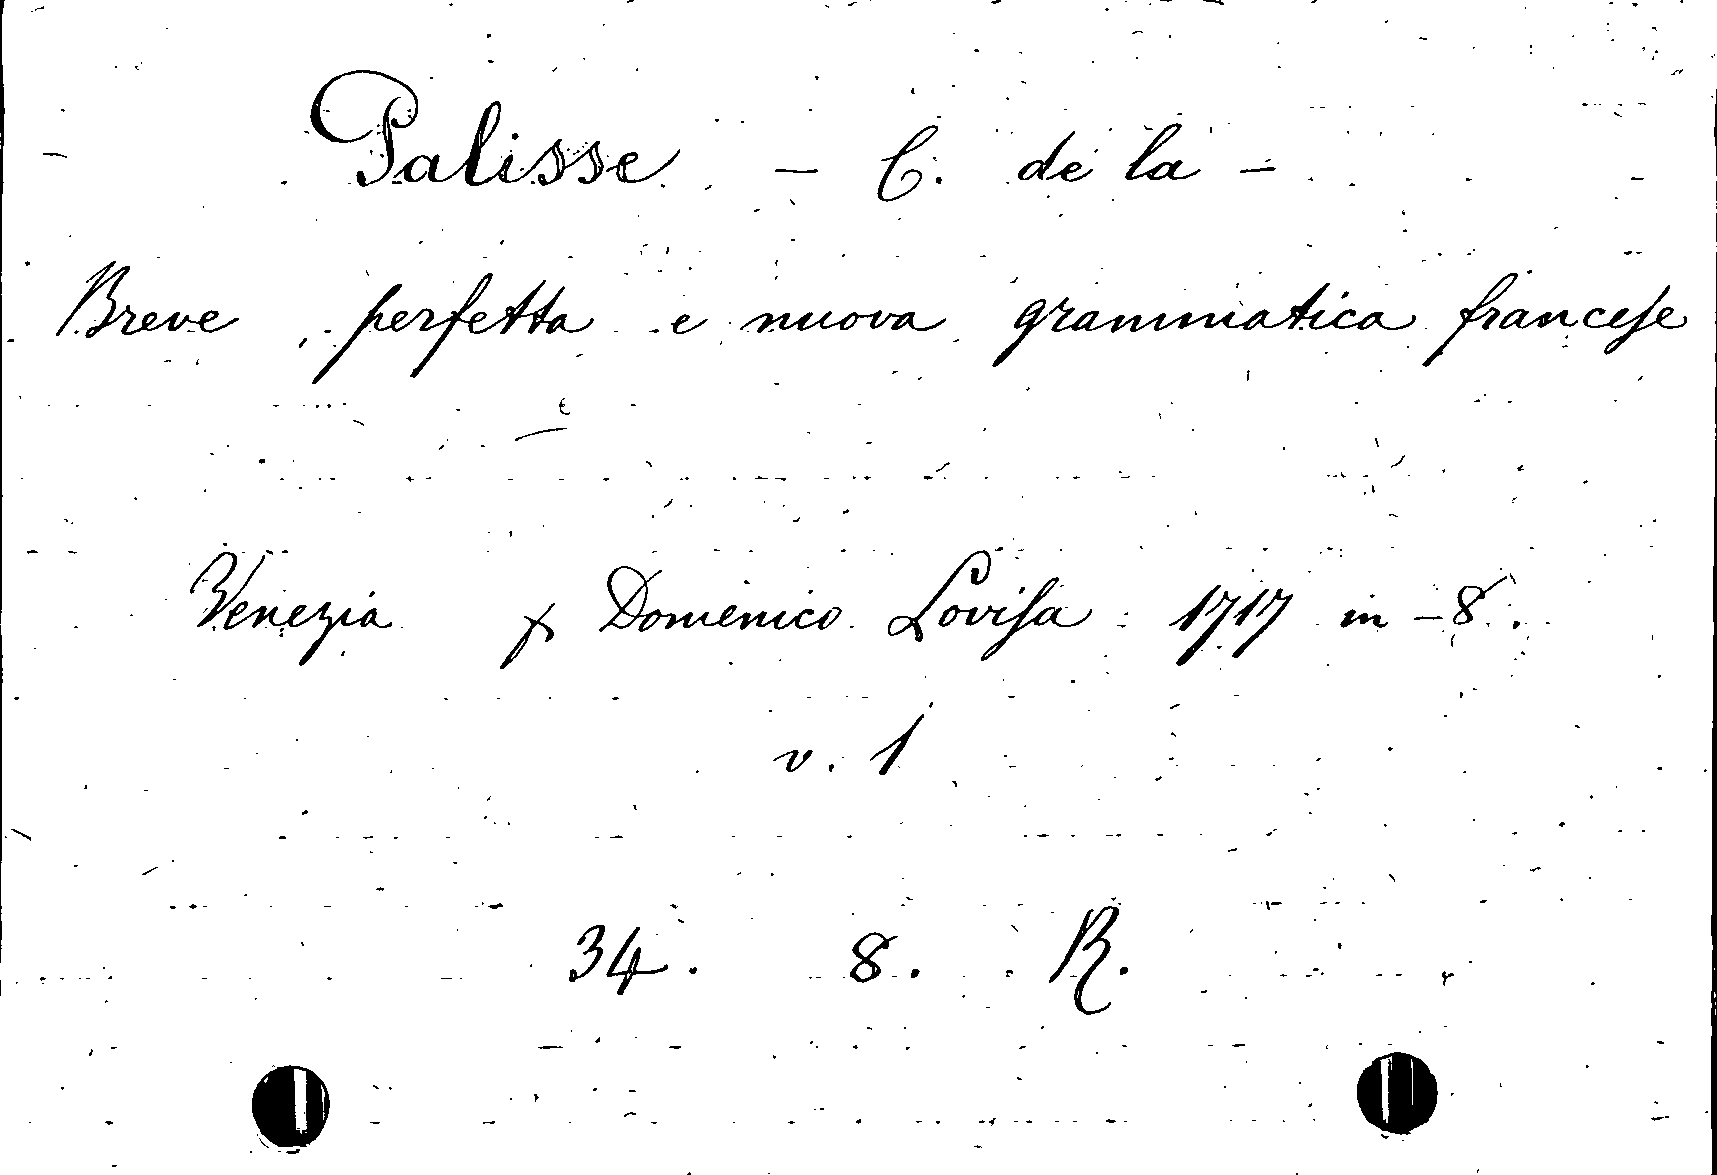 Palisse - C. de la -
Breve, perfetta e nuova grammatica francese
Venezia p Domenico Lovisa 1717 in-8.
v. 1
34. 8. R.